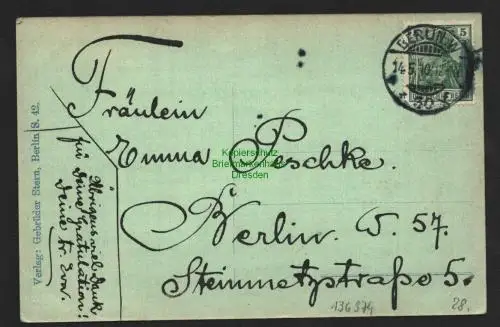 BERLIN W
14.5.10
* 30 *
5
Fräulein
Emma Peschke.
Berlin. W. 57.
Steinmetzstraße 5.
Übrigens viel Dank
für Deine Gratulation!
Deine tr. Eva.
Verlag: Gebrüder Stern, Berlin S. 42.
Kopierschutz
Briefmarkenhaus
Dresden
136974
28.